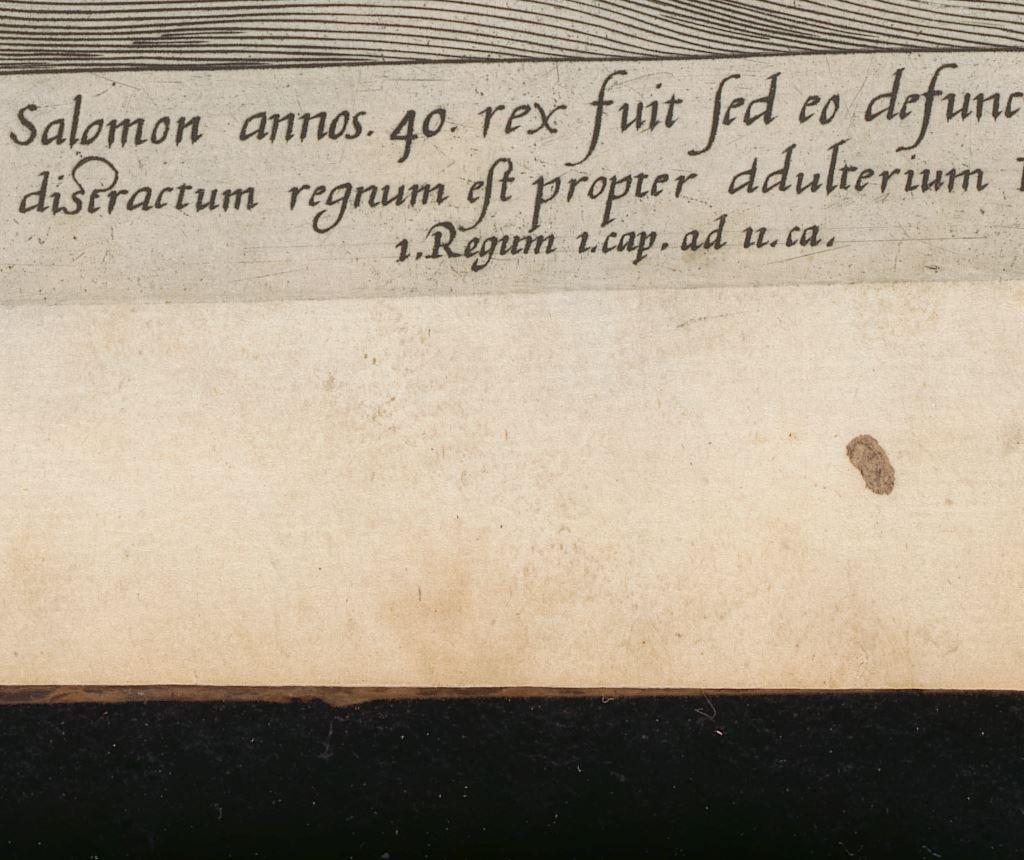 Salomon annos. 40. rex fuit ſed eo defunc
discractum regnum eſt propter ddulterium
1. Regum 1. cap. ad 11. ca.